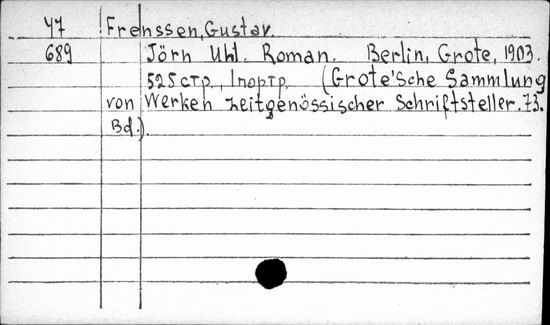 У7 Frenssen, Gustav.
689 Jörn Uhl. Roman. Berlin, Grote, 1903.
525 стр., 1 портр. (Grote'sche Sammlung
von Werken zeitgenössischer Schriftsteller. 73.
Bd.).